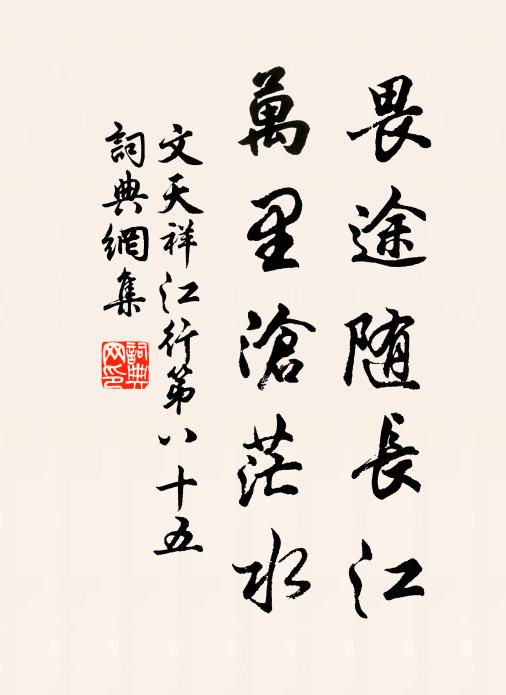 畏途随長江
萬里滄茫水
文天祥江行第八十五
詞典網集
詞典
网印